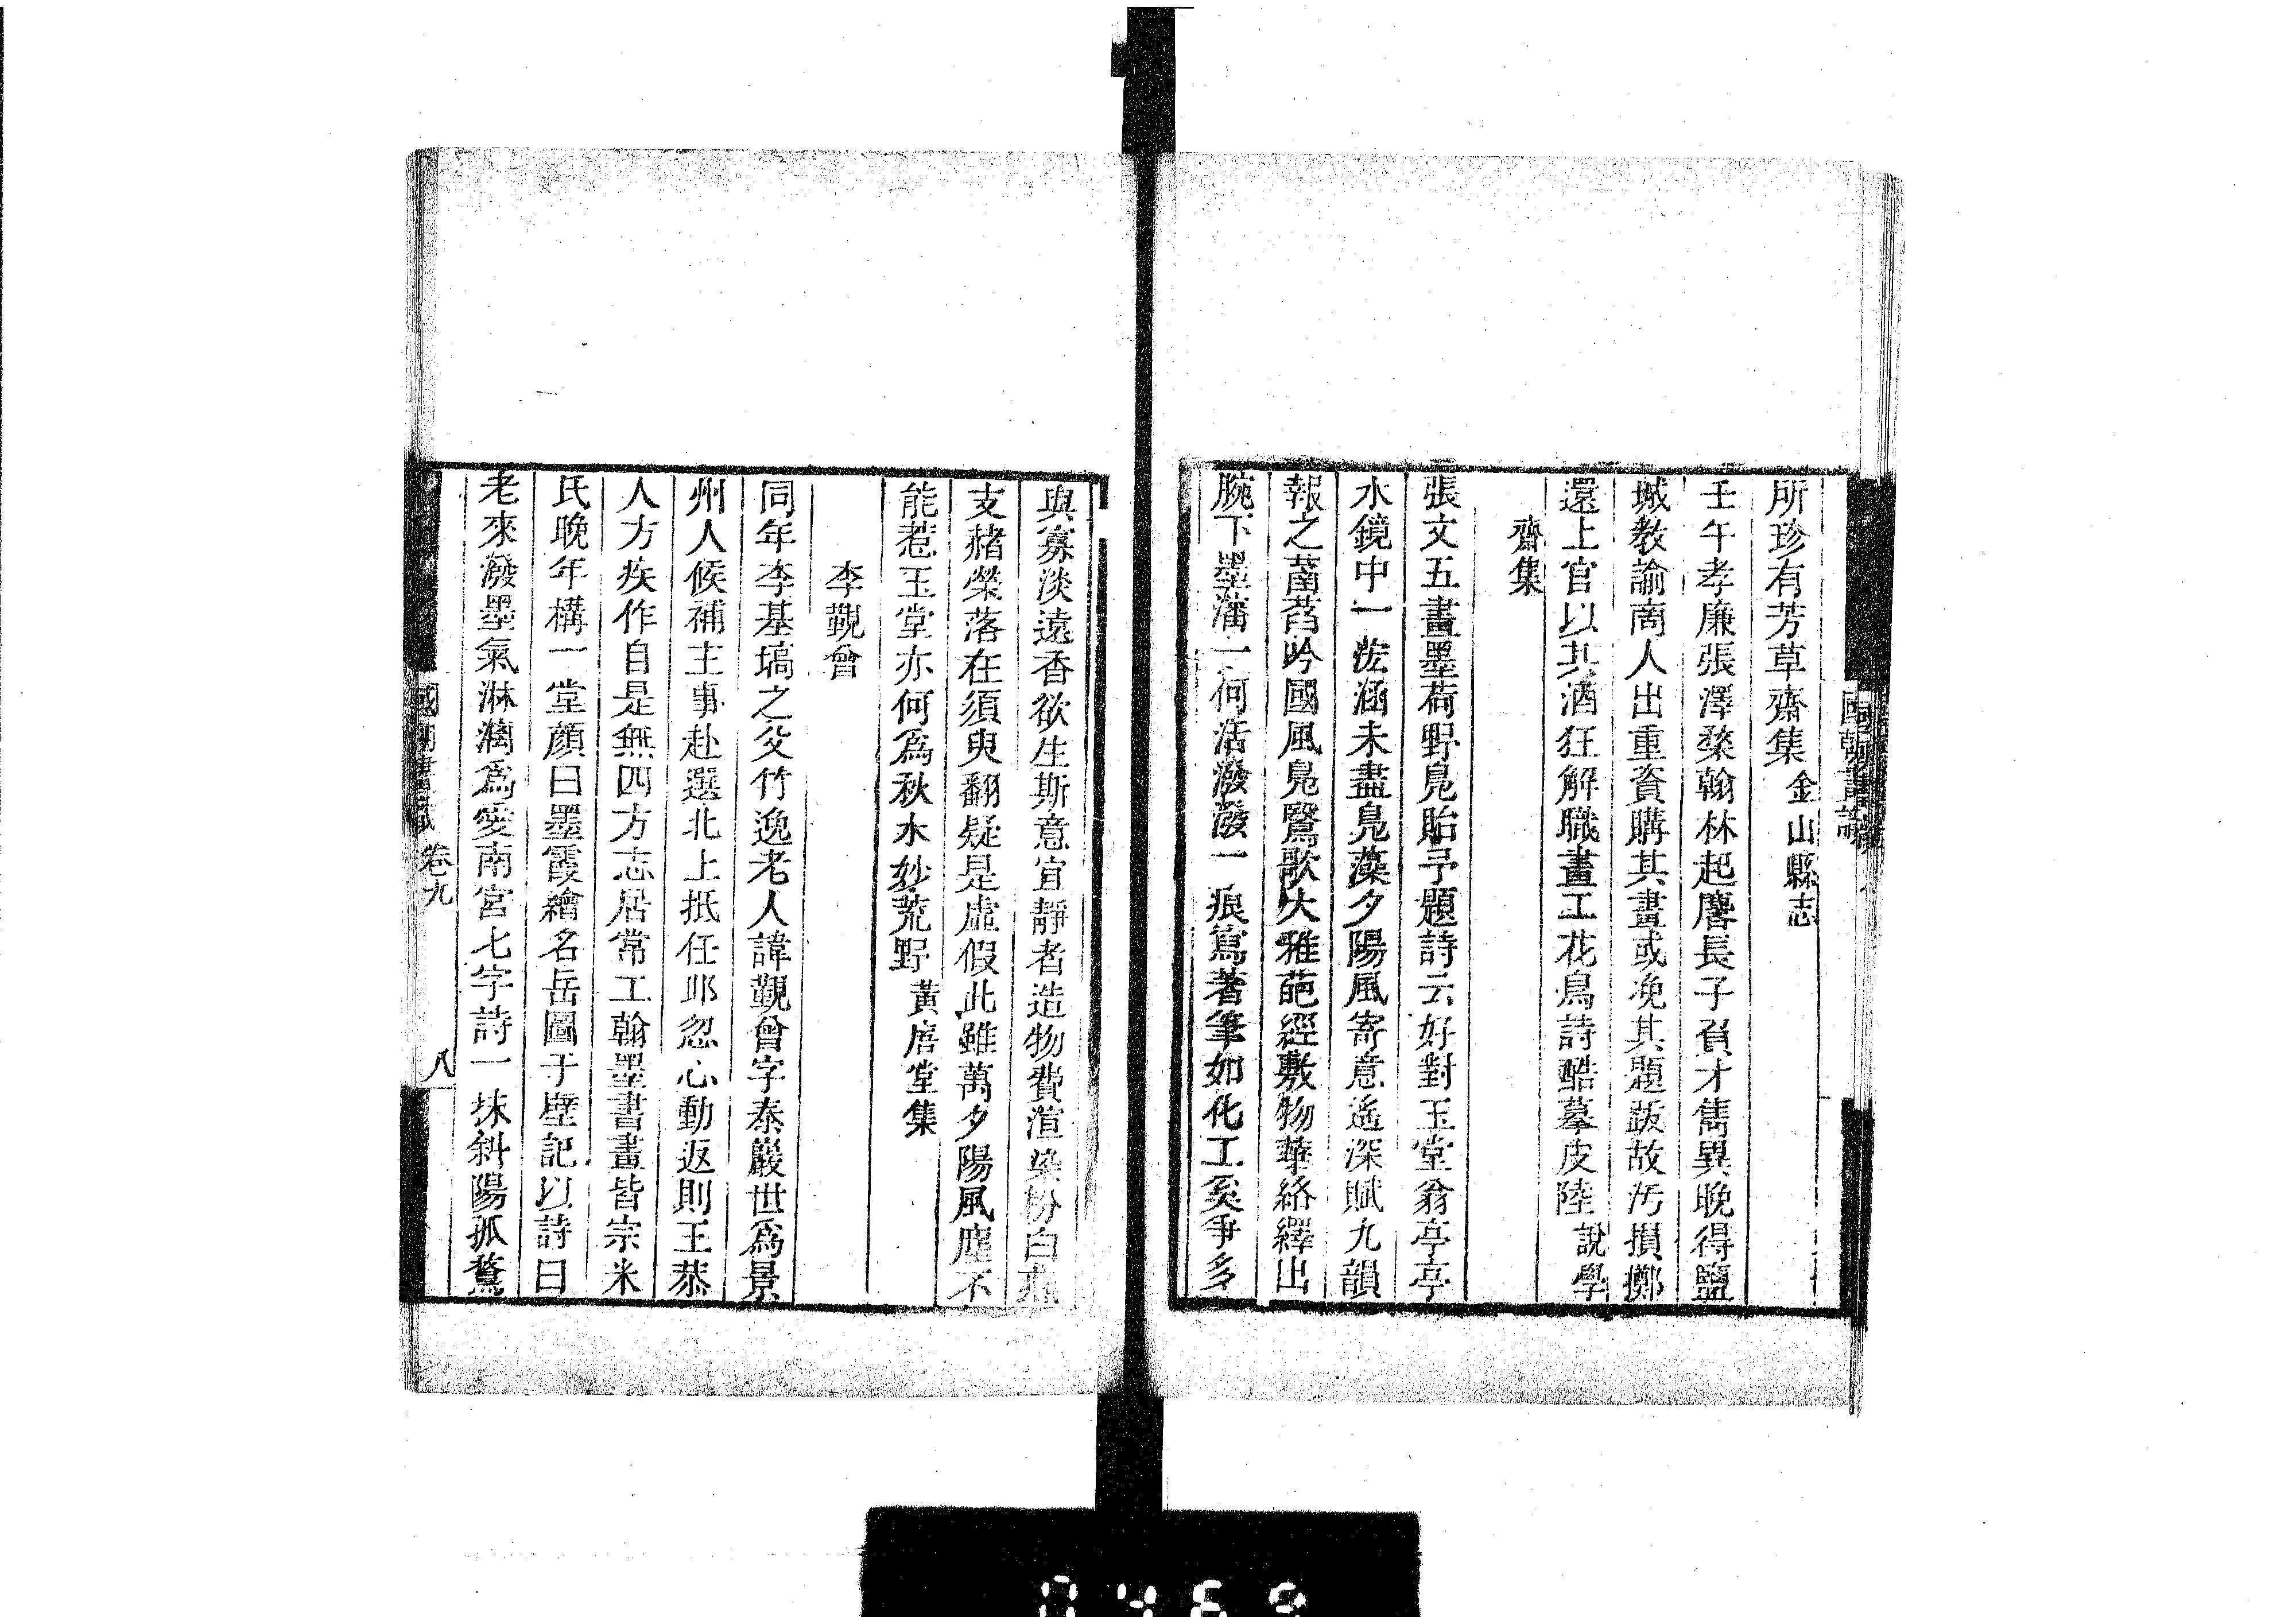 所珍有芳草齋集金山縣志
壬午孝廉張澤棻翰林起麐長子負才雋異晚得鹽
城教諭商人出重資購其畫或浼其題跋故汚損擲
還上官以其酒狂解職畫工花鳥詩酷摹皮陸說學
齋集
張文五畫墨荷野鳧貽予題詩云好對玉堂翁亭亭
水鏡中一泓涵未盡鳧藻夕陽風寄意遙深賦九韻
報之菡萏吟國風鳧鷖歌大雅葩經敷物華絡繹出
腕下墨藩一何活潑潑一痕寫著筆如化工奚爭多
與寡淡遠香欲生斯意宜靜者造物費渲染粉白兼
支赭榮落在須臾翻疑是虛假此雖萬夕陽風塵不
能惹玉堂亦何爲秋水妙荒野黃唐堂集
李觀曾
同年李基塙之父竹逸老人諱觀曾字泰巖世爲景
州人候補主事赴選北上抵任邱忽心動返則王恭
人方疾作自是無四方志居常工翰墨書畫皆宗米
氏晚年構一堂顏曰墨霞繪名岳圖于壁記以詩曰
老來潑墨氣淋漓爲愛南宮七字詩一抹斜陽孤鶩
卷九
八